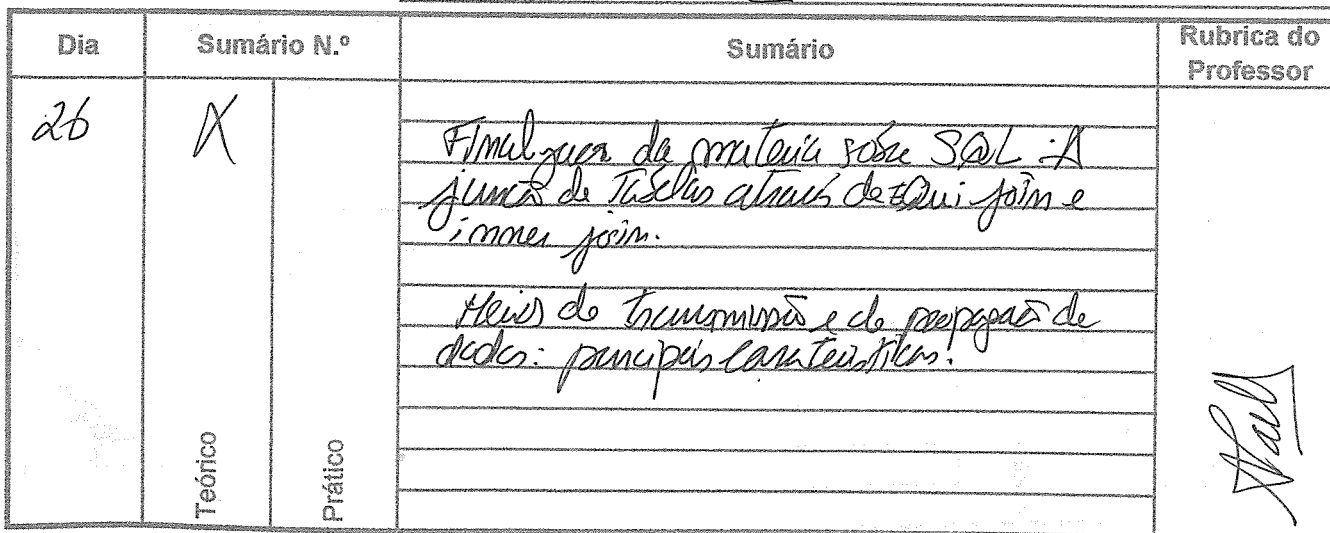 Dia Sumário N.º Sumário Rubrica do Professor
26 X
Finalização da matéria sobre SQL: A
junção de Tabelas através de EQui join e
inner join.
Meios de transmissão e de propagação de
dados: principais caraterísticas.
Teórico Prático